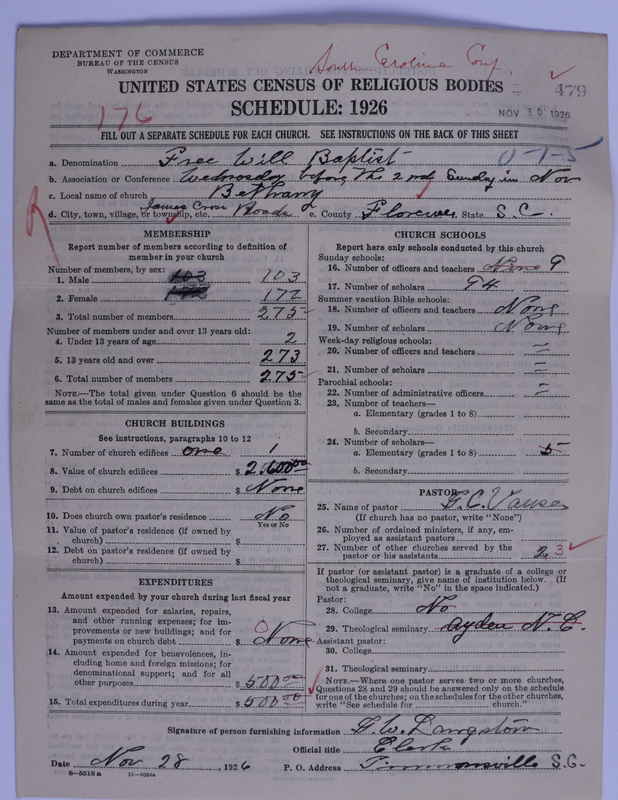 DEPARTMENT OF COMMERCE
BUREAU OF THE CENSUS
WASHINGTON
South Carolina Conf.
UNITED STATES CENSUS OF RELIGIOUS BODIES
479
SCHEDULE: 1926
NOV 30 1926
176
FILL OUT A SEPARATE SCHEDULE FOR EACH CHURCH. SEE INSTRUCTIONS ON THE BACK OF THIS SHEET
a. Denomination Free Will Baptist 07-5
b. Association or Conference Wednesday before The 2nd Sunday in Nov
c. Local name of church Bethany
d. City, town, village, or township, etc. James Cross Roads e. County Florence State S.C.
MEMBERSHIP
Report number of members according to definition of member in your church
Number of members, by sex:
1. Male 103 103
2. Female 172 172
3. Total number of members 275
Number of members under and over 13 years old:
4. Under 13 years of age 2
5. 13 years old and over 273
6. Total number of members 275
NOTE.—The total given under Question 6 should be
same as the total of males and females given under Question 3.
CHURCH BUILDINGS
See instructions, paragraphs 10 to 12
7. Number of church edifices one 1
8. Value of church edifices $ 2,600.00
9. Debt on church edifices $ None
10. Does church own pastor's residence No
Yes or No
11. Value of pastor's residence (if owned by
church) $
12. Debt on pastor's residence (if owned by
church) $
EXPENDITURES
Amount expended by your church during last fiscal year
13. Amount expended for salaries, repairs,
and other running expenses; for im-
provements or new buildings; and for
payments on church debt $ None 0
14. Amount expended for benevolences, in-
cluding home and foreign missions; for
denominational support; and for all
other purposes $ 500.00
15. Total expenditures during year $ 500.00
CHURCH SCHOOLS
Report here only schools conducted by this church
Sunday schools:
16. Number of officers and teachers Nine 9
17. Number of scholars 94
Summer vacation Bible schools:
18. Number of officers and teachers None
19. Number of scholars None
Week-day religious schools:
20. Number of officers and teachers
21. Number of scholars
Parochial schools:
22. Number of administrative officers
23. Number of teachers—
a. Elementary (grades 1 to 8)
b. Secondary
24. Number of scholars—
a. Elementary (grades 1 to 8) 5
b. Secondary
PASTOR
25. Name of pastor
(If church has no pastor, write "None")
26. Number of ordained ministers, if any, em-
ployed as assistant pastors
27. Number of other churches served by the
pastor or his assistants 2 3
If pastor (or assistant pastor) is a graduate of a college or
theological seminary, give name of institution below. (If
not a graduate, write "No" in the space indicated.)
Pastor:
28. College No
29. Theological seminary Ayden N.C.
Assistant pastor:
30. College
31. Theological seminary
NOTE.—Where one pastor serves two or more churches,
Questions 28 and 29 should be answered only on the schedule
for one of the churches; on the schedules for the other churches,
write "See schedule for church."
Signature of person furnishing information Langston
Official title Clerk
Date Nov 28, 1926 P. O. Address Timmonsville S.C.
8—5518 a